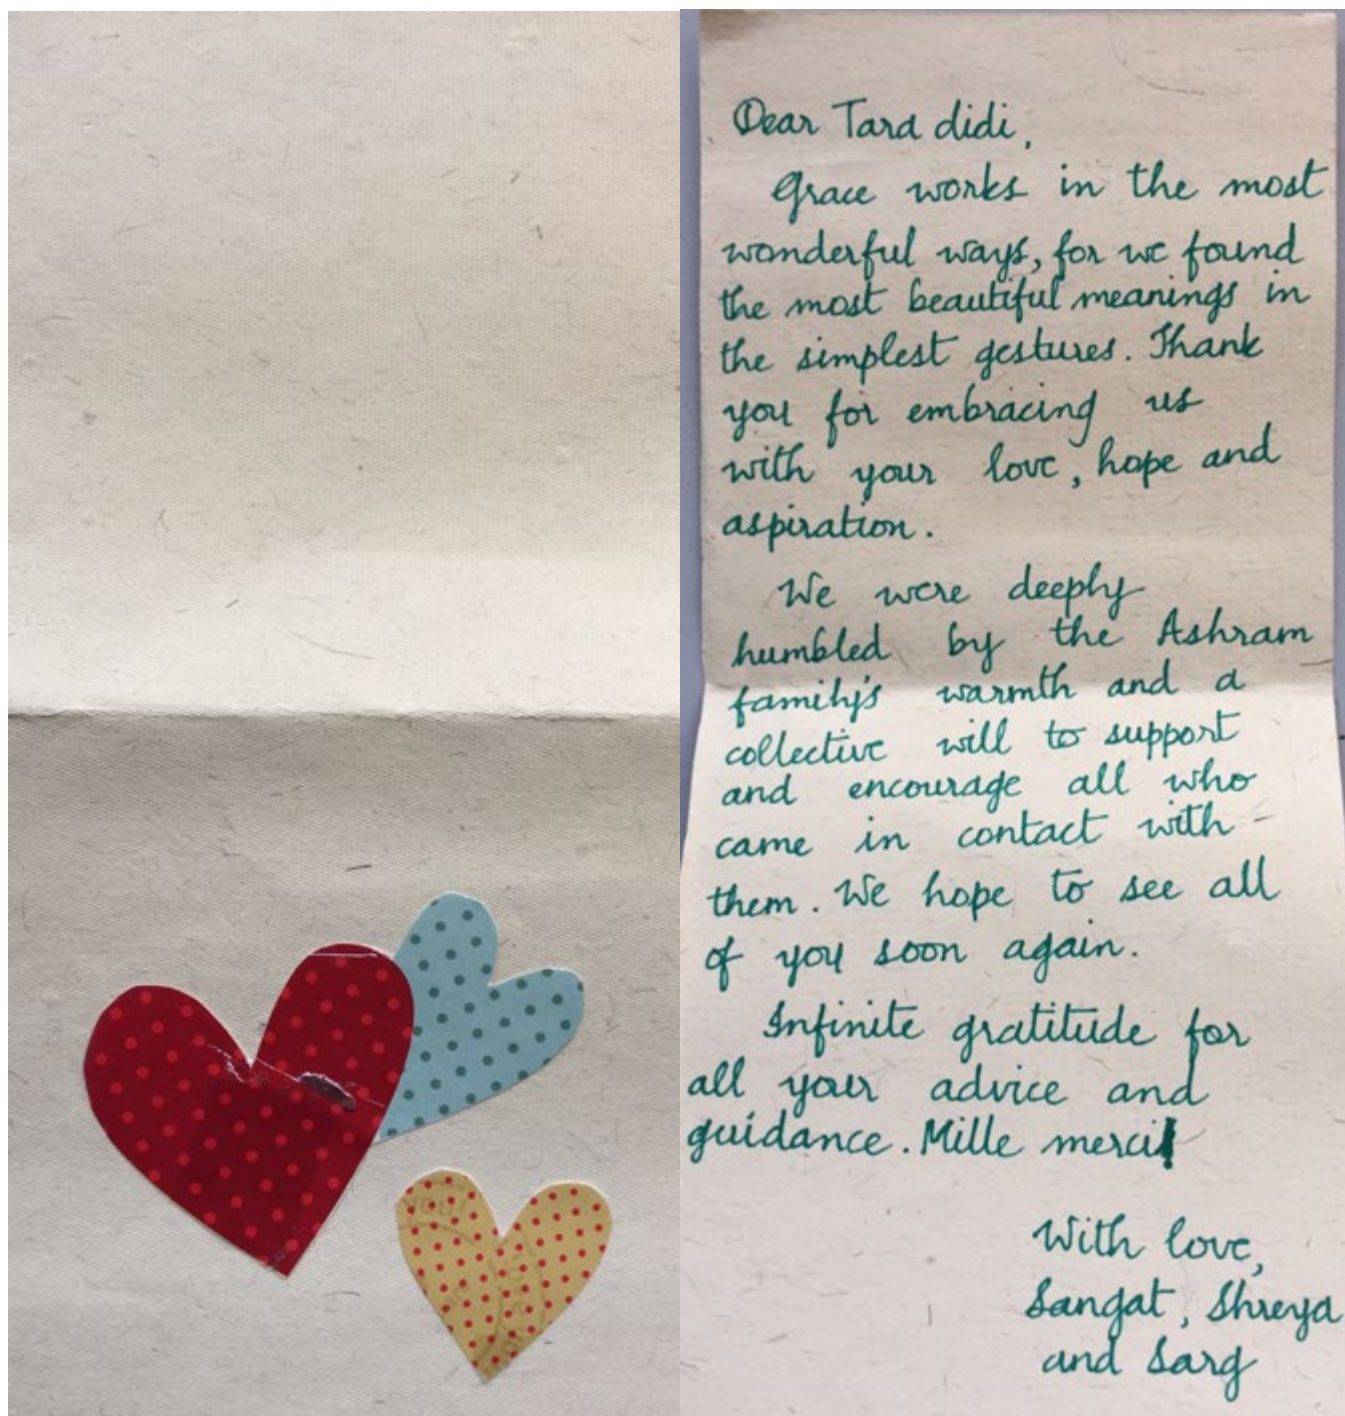 Dear Tara didi,
Grace works in the most
wonderful ways, for we found
the most beautiful meanings in
the simplest gestures. Thank
you for embracing us
with your love, hope and
aspiration.
We were deeply
humbled by the Ashram
family's warmth and a
collective will to support
and encourage all who
came in contact with
them. We hope to see all
of you soon again.
Infinite gratitude for
all your advice and
guidance. Mille merci
With love,
Sangat, Shreya
and Sarg